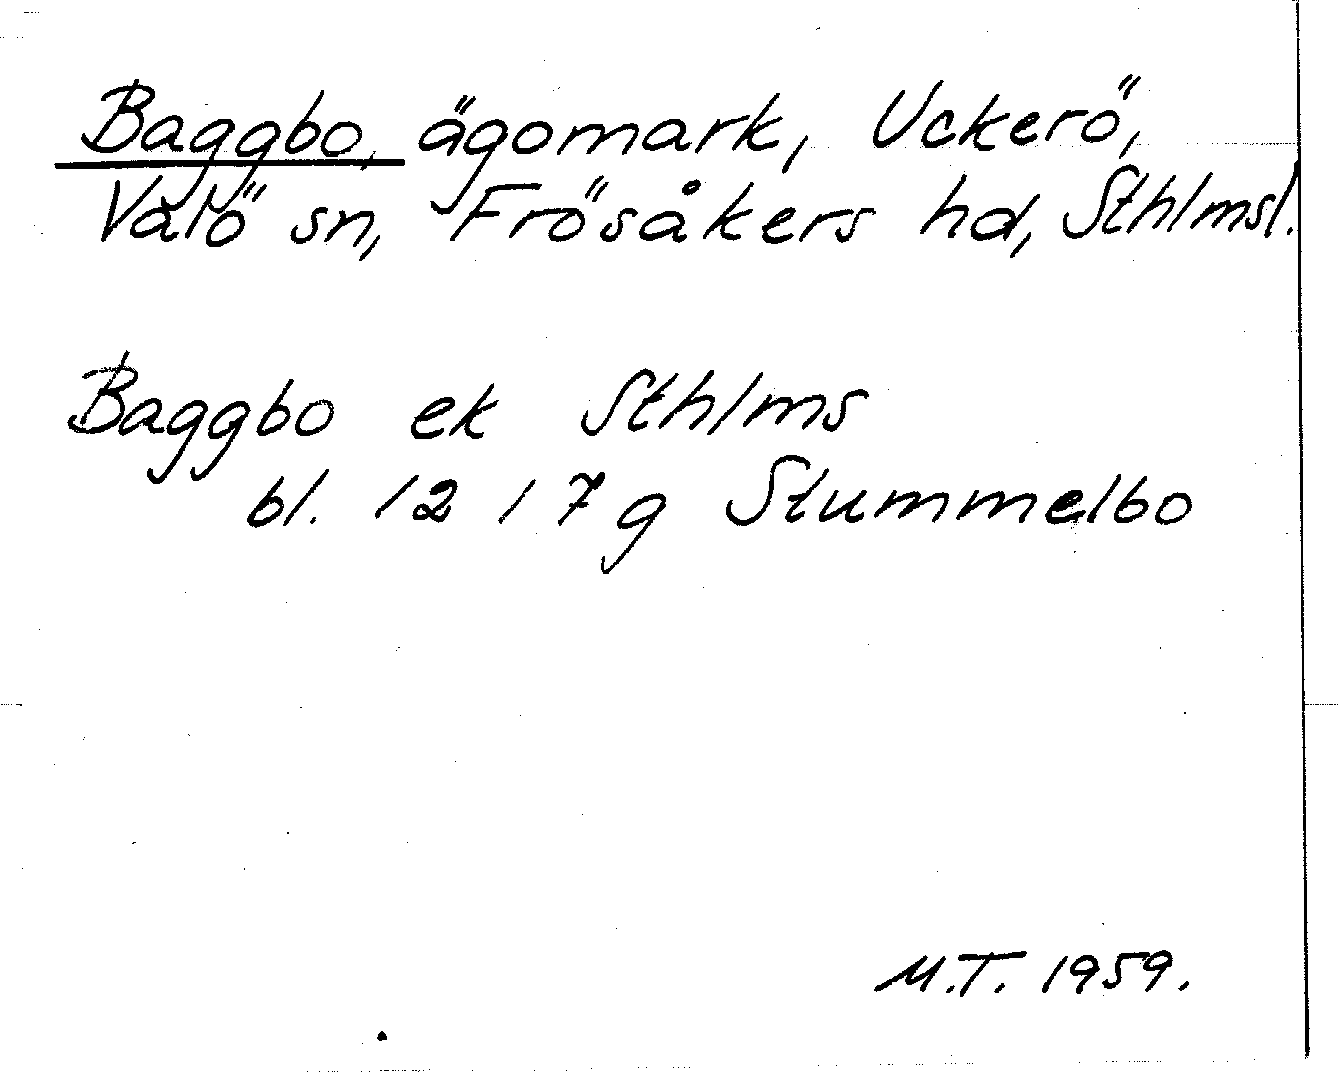 Baggbo, ägomark, Uckerö,
Valö sn, Frösåkers hd, Sthlmsl.
Baggbo ek Sthlms
bl. 12 I 7g Stummelbo
M.T. 1959.